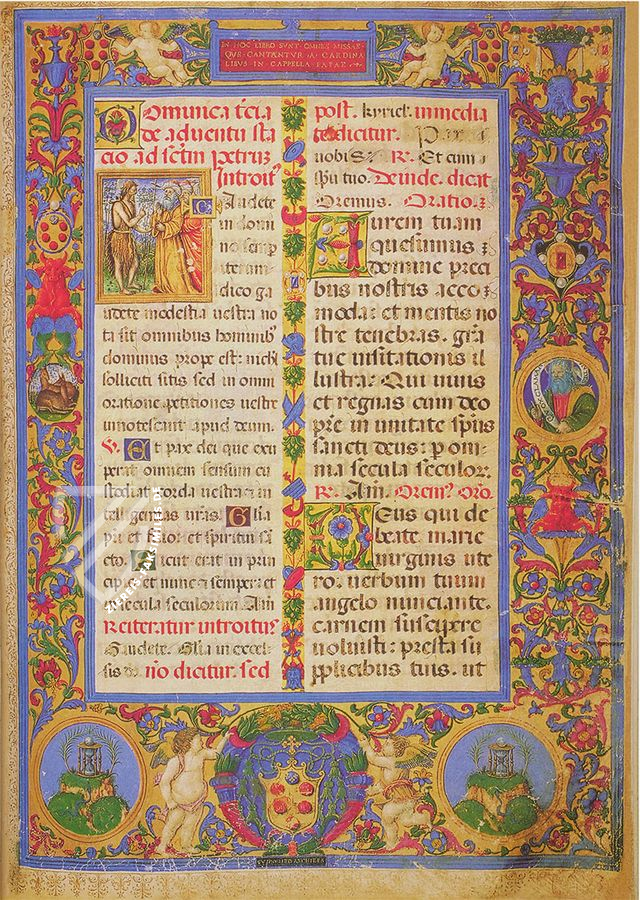 IN HOC LIBRO SVNT OMNES MISSAE
QVE CANTANTVR A CARDINA
LIBVS IN CAPPELLA PAPAE
Dominica t̄cia
de aduentu sta
cio ad sc̄tm petrum
Introit'
Gaudete
in domi
no semp
iterum
dico ga
udete modestia uestra no
ta sit omnibus hominib'
dominus prope est: nichil
solliciti sitis sed in omni
oratione petitiones uestre
innotescant apud deum.
V. Et pax dei que exu
perat omnem sensum cu
stodiat corda uestra et in
telligentias uras. Glia
pri et filio et spiritui sā
cto. Sicut erat in prin
cipio et nunc et semper et
in secula seculorum. Am̄
Reiteratur introitus
Gaudete. Glia in excel
sis do nō dicitur. sed
post. kyriel. inmedia
te dicitur. Pax
uobis. R. Et cum
sp̄u tuo. Deinde. dicat
Oremus. Oratio.
Aurem tuam
quesumus
domine preci
bus nostris acco
moda: et mentis no
stre tenebras. grā
tue uisitationis il
lustra. Qui uiuis
et regnas cum deo
prē in unitate sp̄us
sancti deus: p om
nia secula seculor.
R. Am̄. Orem'. Oro.
Deus qui de
beate marie
uirginis ute
ro. uerbum tuum
angelo nunciante.
carnem suscipere
uoluisti: presta su
pplicibus tuis. ut